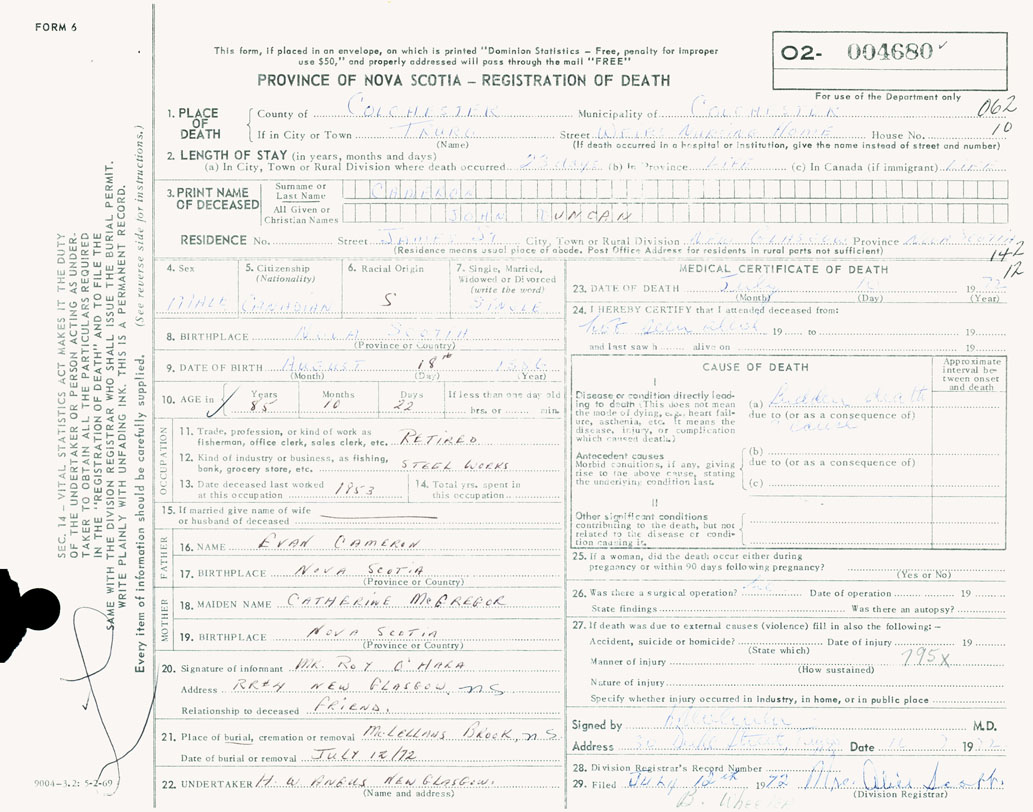 FORM 6
This form, if placed in an envelope, on which is printed "Dominion Statistics – Free, penalty for improper
use $50," and properly addressed will pass through the mail "FREE"
O2- 004680
PROVINCE OF NOVA SCOTIA – REGISTRATION OF DEATH
For use of the Department only
062
10
1. PLACE OF DEATH County of COLCHESTER Municipality of COLCHESTER
If in City or Town TRURO Street WEIRS NURSING HOME House No.
(Name) (If death occurred in a hospital or institution, give the name instead of street and number)
2. LENGTH OF STAY (in years, months and days)
(a) In City, Town or Rural Division where death occurred 23 days (b) In Province LIFE (c) In Canada (if immigrant) LIFE
3. PRINT NAME OF DECEASED Surname or Last Name CAMERON
All Given or Christian Names JOHN DUNCAN
RESIDENCE No. Street JAMES ST. City, Town or Rural Division NEW GLASGOW Province NOVA SCOTIA
(Residence means usual place of abode. Post Office Address for residents in rural parts not sufficient)
142
12
4. Sex MALE
5. Citizenship (Nationality) CANADIAN
6. Racial Origin S
7. Single, Married, Widowed or Divorced (write the word) SINGLE
8. BIRTHPLACE NOVA SCOTIA
(Province or Country)
9. DATE OF BIRTH AUGUST 18th 1886
(Month) (Day) (Year)
10. AGE in Years 85 Months 10 Days 22 If less than one day old hrs. or min.
OCCUPATION
11. Trade, profession, or kind of work as
fisherman, office clerk, sales clerk, etc. RETIRED
12. Kind of industry or business, as fishing,
bank, grocery store, etc. STEEL WORKS
13. Date deceased last worked at this occupation 1953
14. Total yrs. spent in this occupation
15. If married give name of wife
or husband of deceased
FATHER
16. NAME EVAN CAMERON
17. BIRTHPLACE NOVA SCOTIA
(Province or Country)
MOTHER
18. MAIDEN NAME CATHERINE McGREGOR
19. BIRTHPLACE NOVA SCOTIA
(Province or Country)
20. Signature of informant MR. ROY O'HARA
Address RR#4 NEW GLASGOW, NS
Relationship to deceased FRIEND.
21. Place of burial, cremation or removal McLELLANS BROOK, NS
Date of burial or removal JULY 12/72
22. UNDERTAKER H. W. ANGUS NEW GLASGOW.
(Name and address)
MEDICAL CERTIFICATE OF DEATH
23. DATE OF DEATH July 10 1972
(Month) (Day) (Year)
24. I HEREBY CERTIFY that I attended deceased from:
not seen alive 19 to 19
and last saw h alive on 19
CAUSE OF DEATH
Approximate interval between onset and death
I
Disease or condition directly leading to death (This does not mean
the mode of dying, e.g., heart failure, asthenia, etc. It means the
disease, injury, or complication
which caused death.)
(a) Sudden death
due to (or as a consequence of)
cause
Antecedent causes
Morbid conditions, if any, giving
rise to the above cause, stating
the underlying condition last.
(b)
due to (or as a consequence of)
(c)
II
Other significant conditions
contributing to the death, but not
related to the disease or condition causing it.
25. If a woman, did the death occur either during
pregnancy or within 90 days following pregnancy?
(Yes or No)
26. Was there a surgical operation? Date of operation 19
State findings Was there an autopsy?
27. If death was due to external causes (violence) fill in also the following: –
Accident, suicide or homicide? Date of injury 19
(State which)
Manner of injury 795X
(How sustained)
Nature of injury
Specify whether injury occurred in industry, in home, or in public place
Signed by M.D.
Address Date 19
28. Division Registrar's Record Number
29. Filed July 12th 1972 Mrs.
(Division Registrar)
SEC. 14 – VITAL STATISTICS ACT MAKES IT THE DUTY
OF THE UNDERTAKER OR PERSON ACTING AS UNDER-
TAKER TO OBTAIN ALL THE PARTICULARS REQUIRED
IN THE "REGISTRATION OF DEATH" AND TO FILE THE
SAME WITH THE DIVISION REGISTRAR WHO SHALL ISSUE THE BURIAL PERMIT.
WRITE PLAINLY WITH UNFADING INK. THIS IS A PERMANENT RECORD.
Every item of information should be carefully supplied. (See reverse side for instructions.)
9004-3.2: 5-2-69